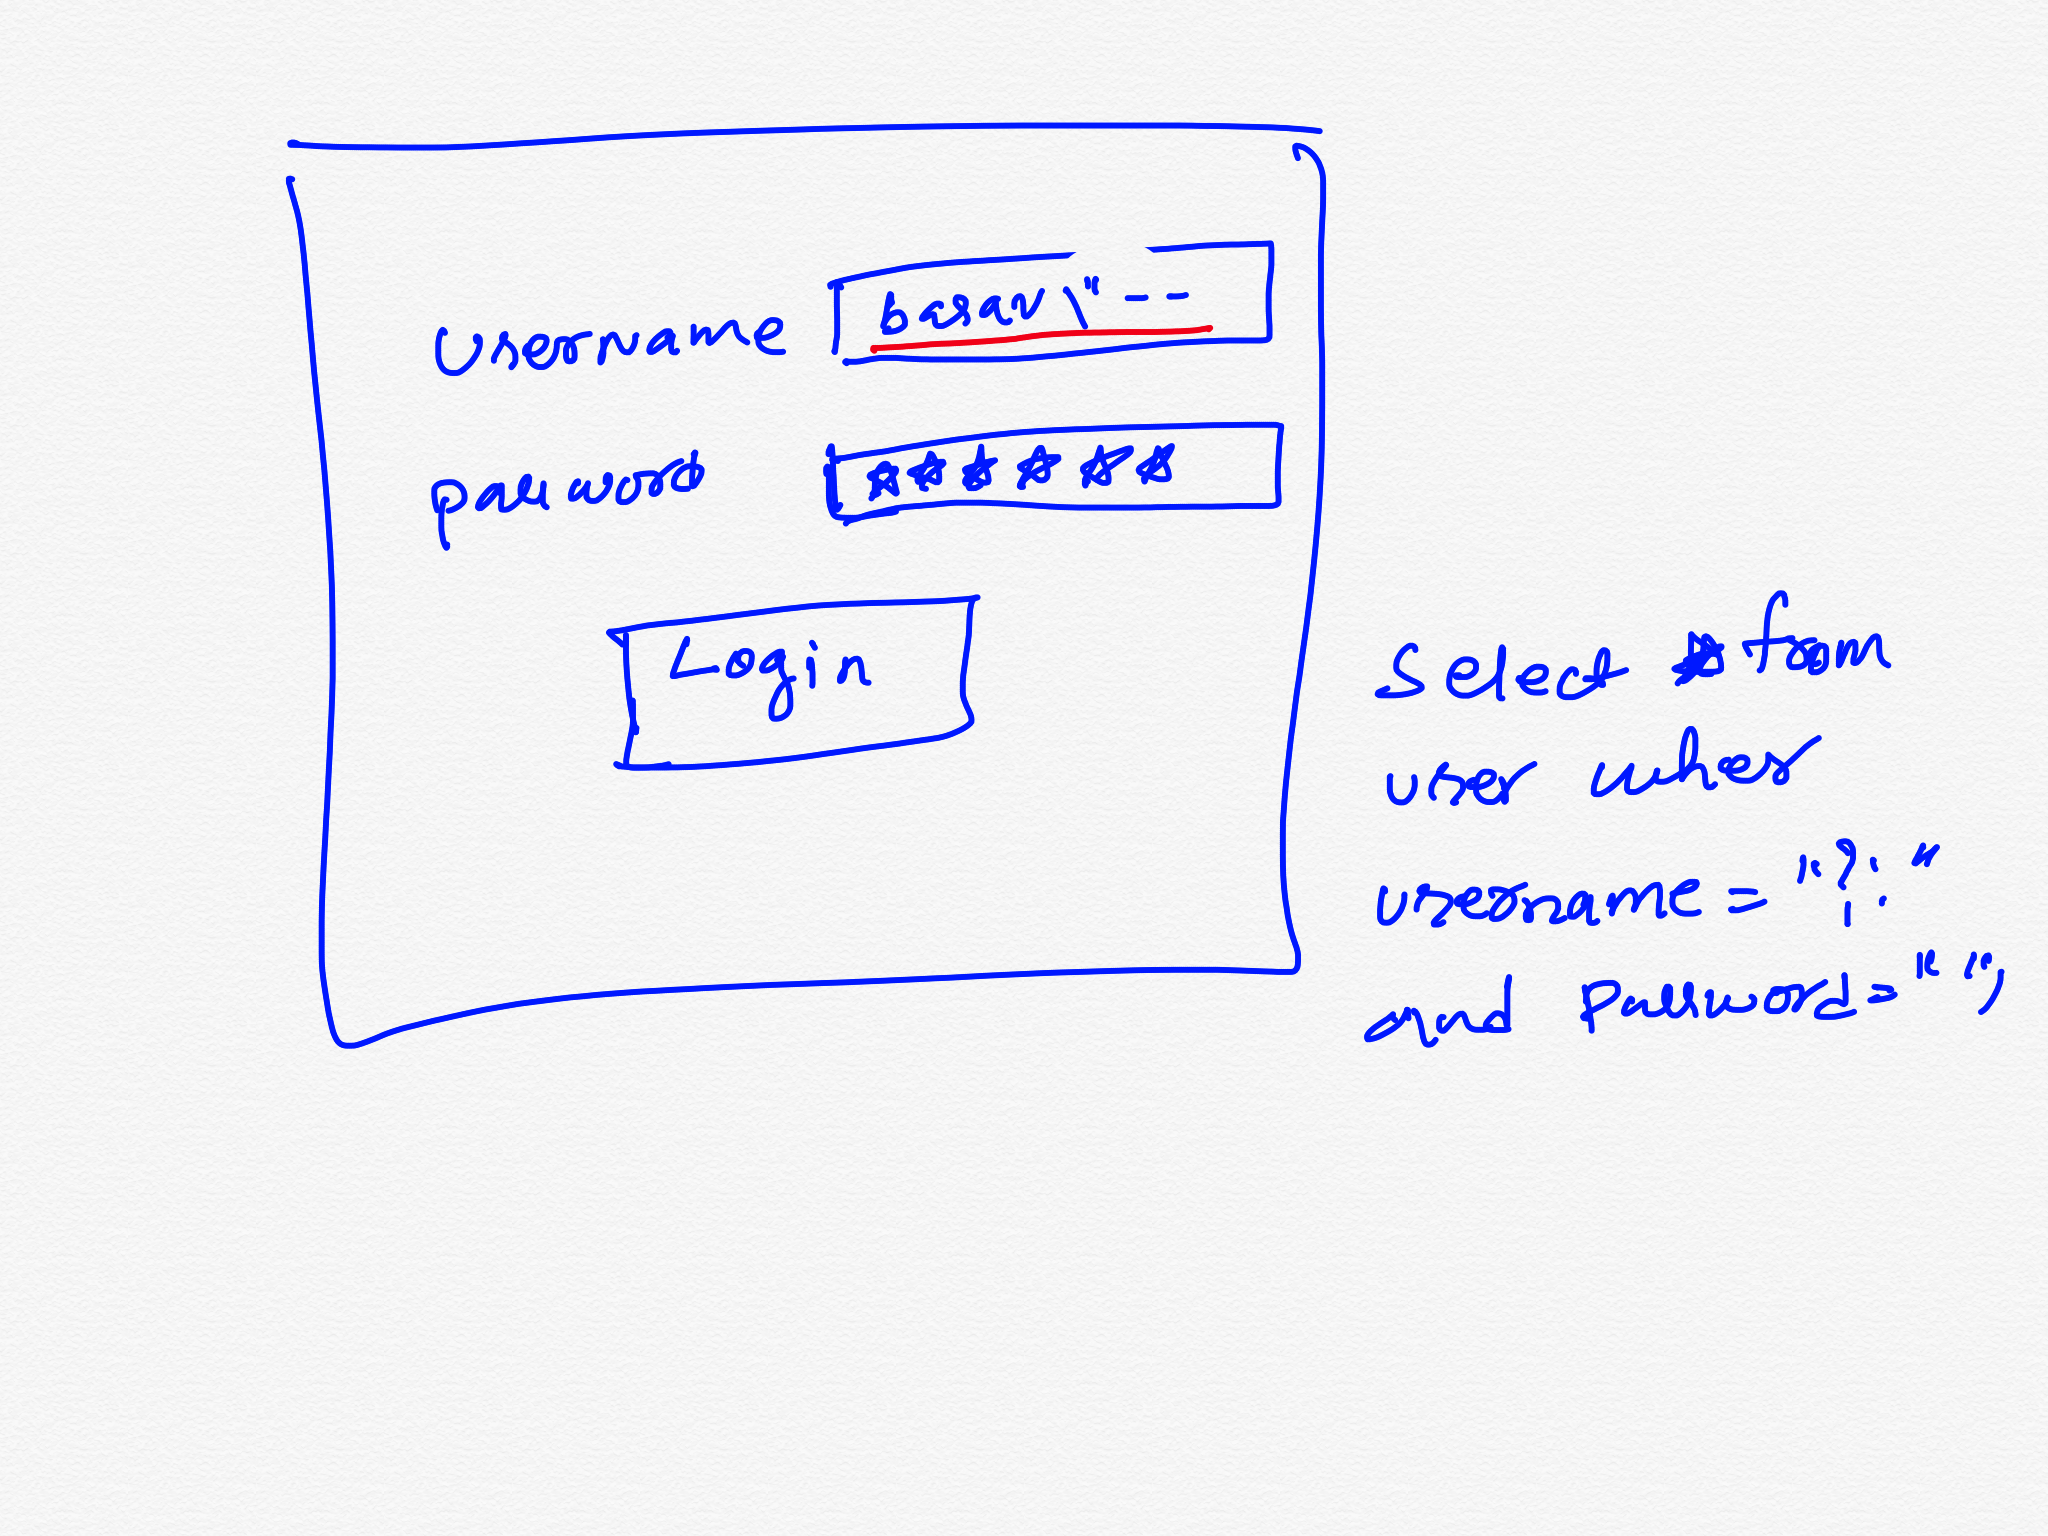 Username basav\"--
password ******
Login
Select * from
user wher
username = "?:"
and Password = "";